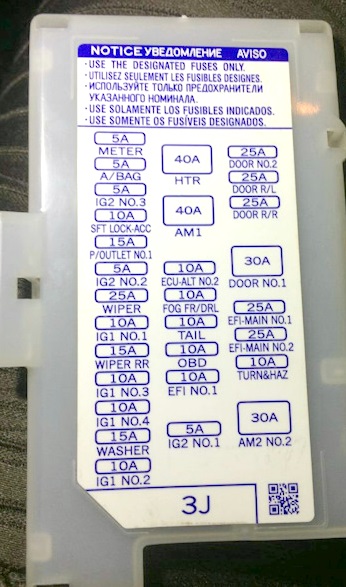 NOTICE УВЕДОМЛЕНИЕ AVISO
· USE THE DESIGNATED FUSES ONLY.
· UTILISEZ SEULEMENT LES FUSIBLES DESIGNES.
· ИСПОЛЬЗУЙТЕ ТОЛЬКО ПРЕДОХРАНИТЕЛИ
УКАЗАННОГО НОМИНАЛА.
· USE SOLAMENTE LOS FUSIBLES INDICADOS.
· USE SOMENTE OS FUSÍVEIS DESIGNADOS.
5A
METER
5A
A/BAG
5A
IG2 NO.3
10A
SFT LOCK-ACC
15A
P/OUTLET NO.1
5A
IG2 NO.2
25A
WIPER
10A
IG1 NO.1
15A
WIPER RR
10A
IG1 NO.3
10A
IG1 NO.4
15A
WASHER
10A
IG1 NO.2
40A
HTR
40A
AM1
10A
ECU-ALT NO.2
10A
FOG FR/DRL
10A
TAIL
10A
OBD
10A
EFI NO.1
5A
IG2 NO.1
25A
DOOR NO.2
25A
DOOR R/L
25A
DOOR R/R
30A
DOOR NO.1
25A
EFI-MAIN NO.1
25A
EFI-MAIN NO.2
10A
TURN&HAZ
30A
AM2 NO.2
3J